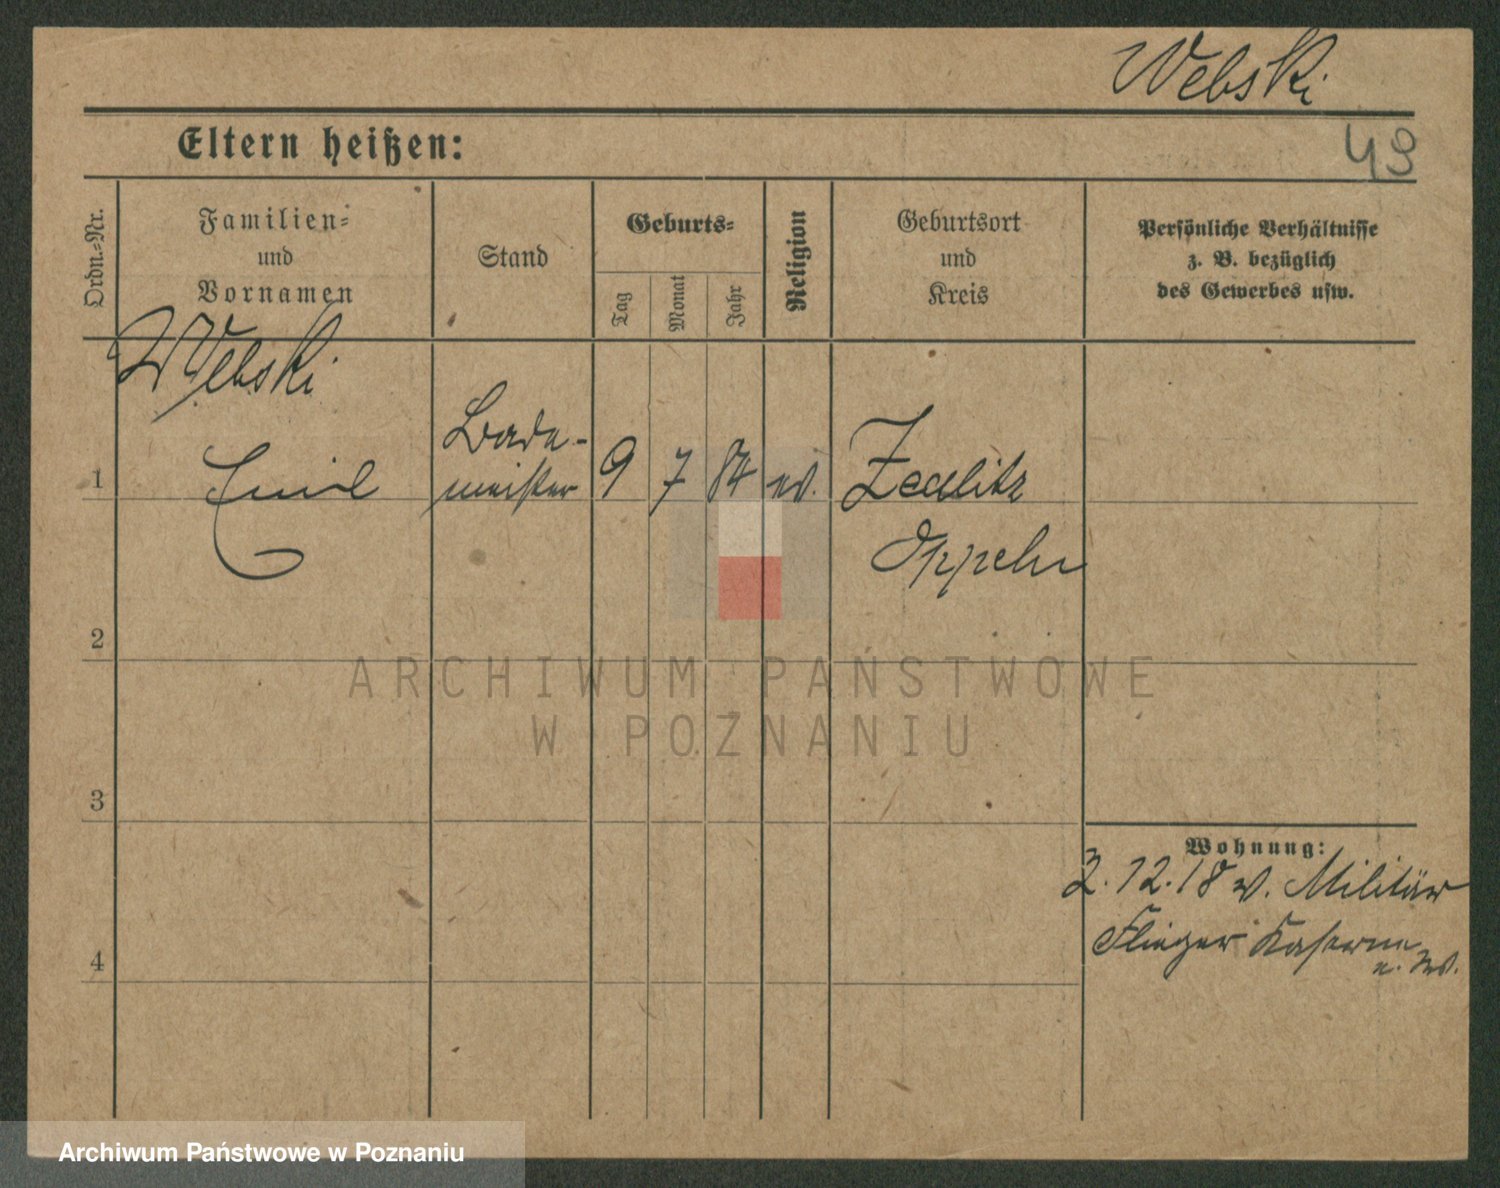 Webski
Eltern heißen:
49
Ordn.=Nr.
Familien=
und
Vornamen
Stand
Geburts=
Tag
Monat
Jahr
Religion
Geburtsort
und
Kreis
Persönliche Verhältnisse
z. B. bezüglich
des Gewerbes usw.
Webski
Emil
Bade-
meister
9 7 84 ev.
Zedlitz
Oppeln
1
2
3
4
Wohnung:
2.12.18 v. Militär
Flieger Kaserne
ARCHIWUM PAŃSTWOWE
W POZNANIU
Archiwum Państwowe w Poznaniu